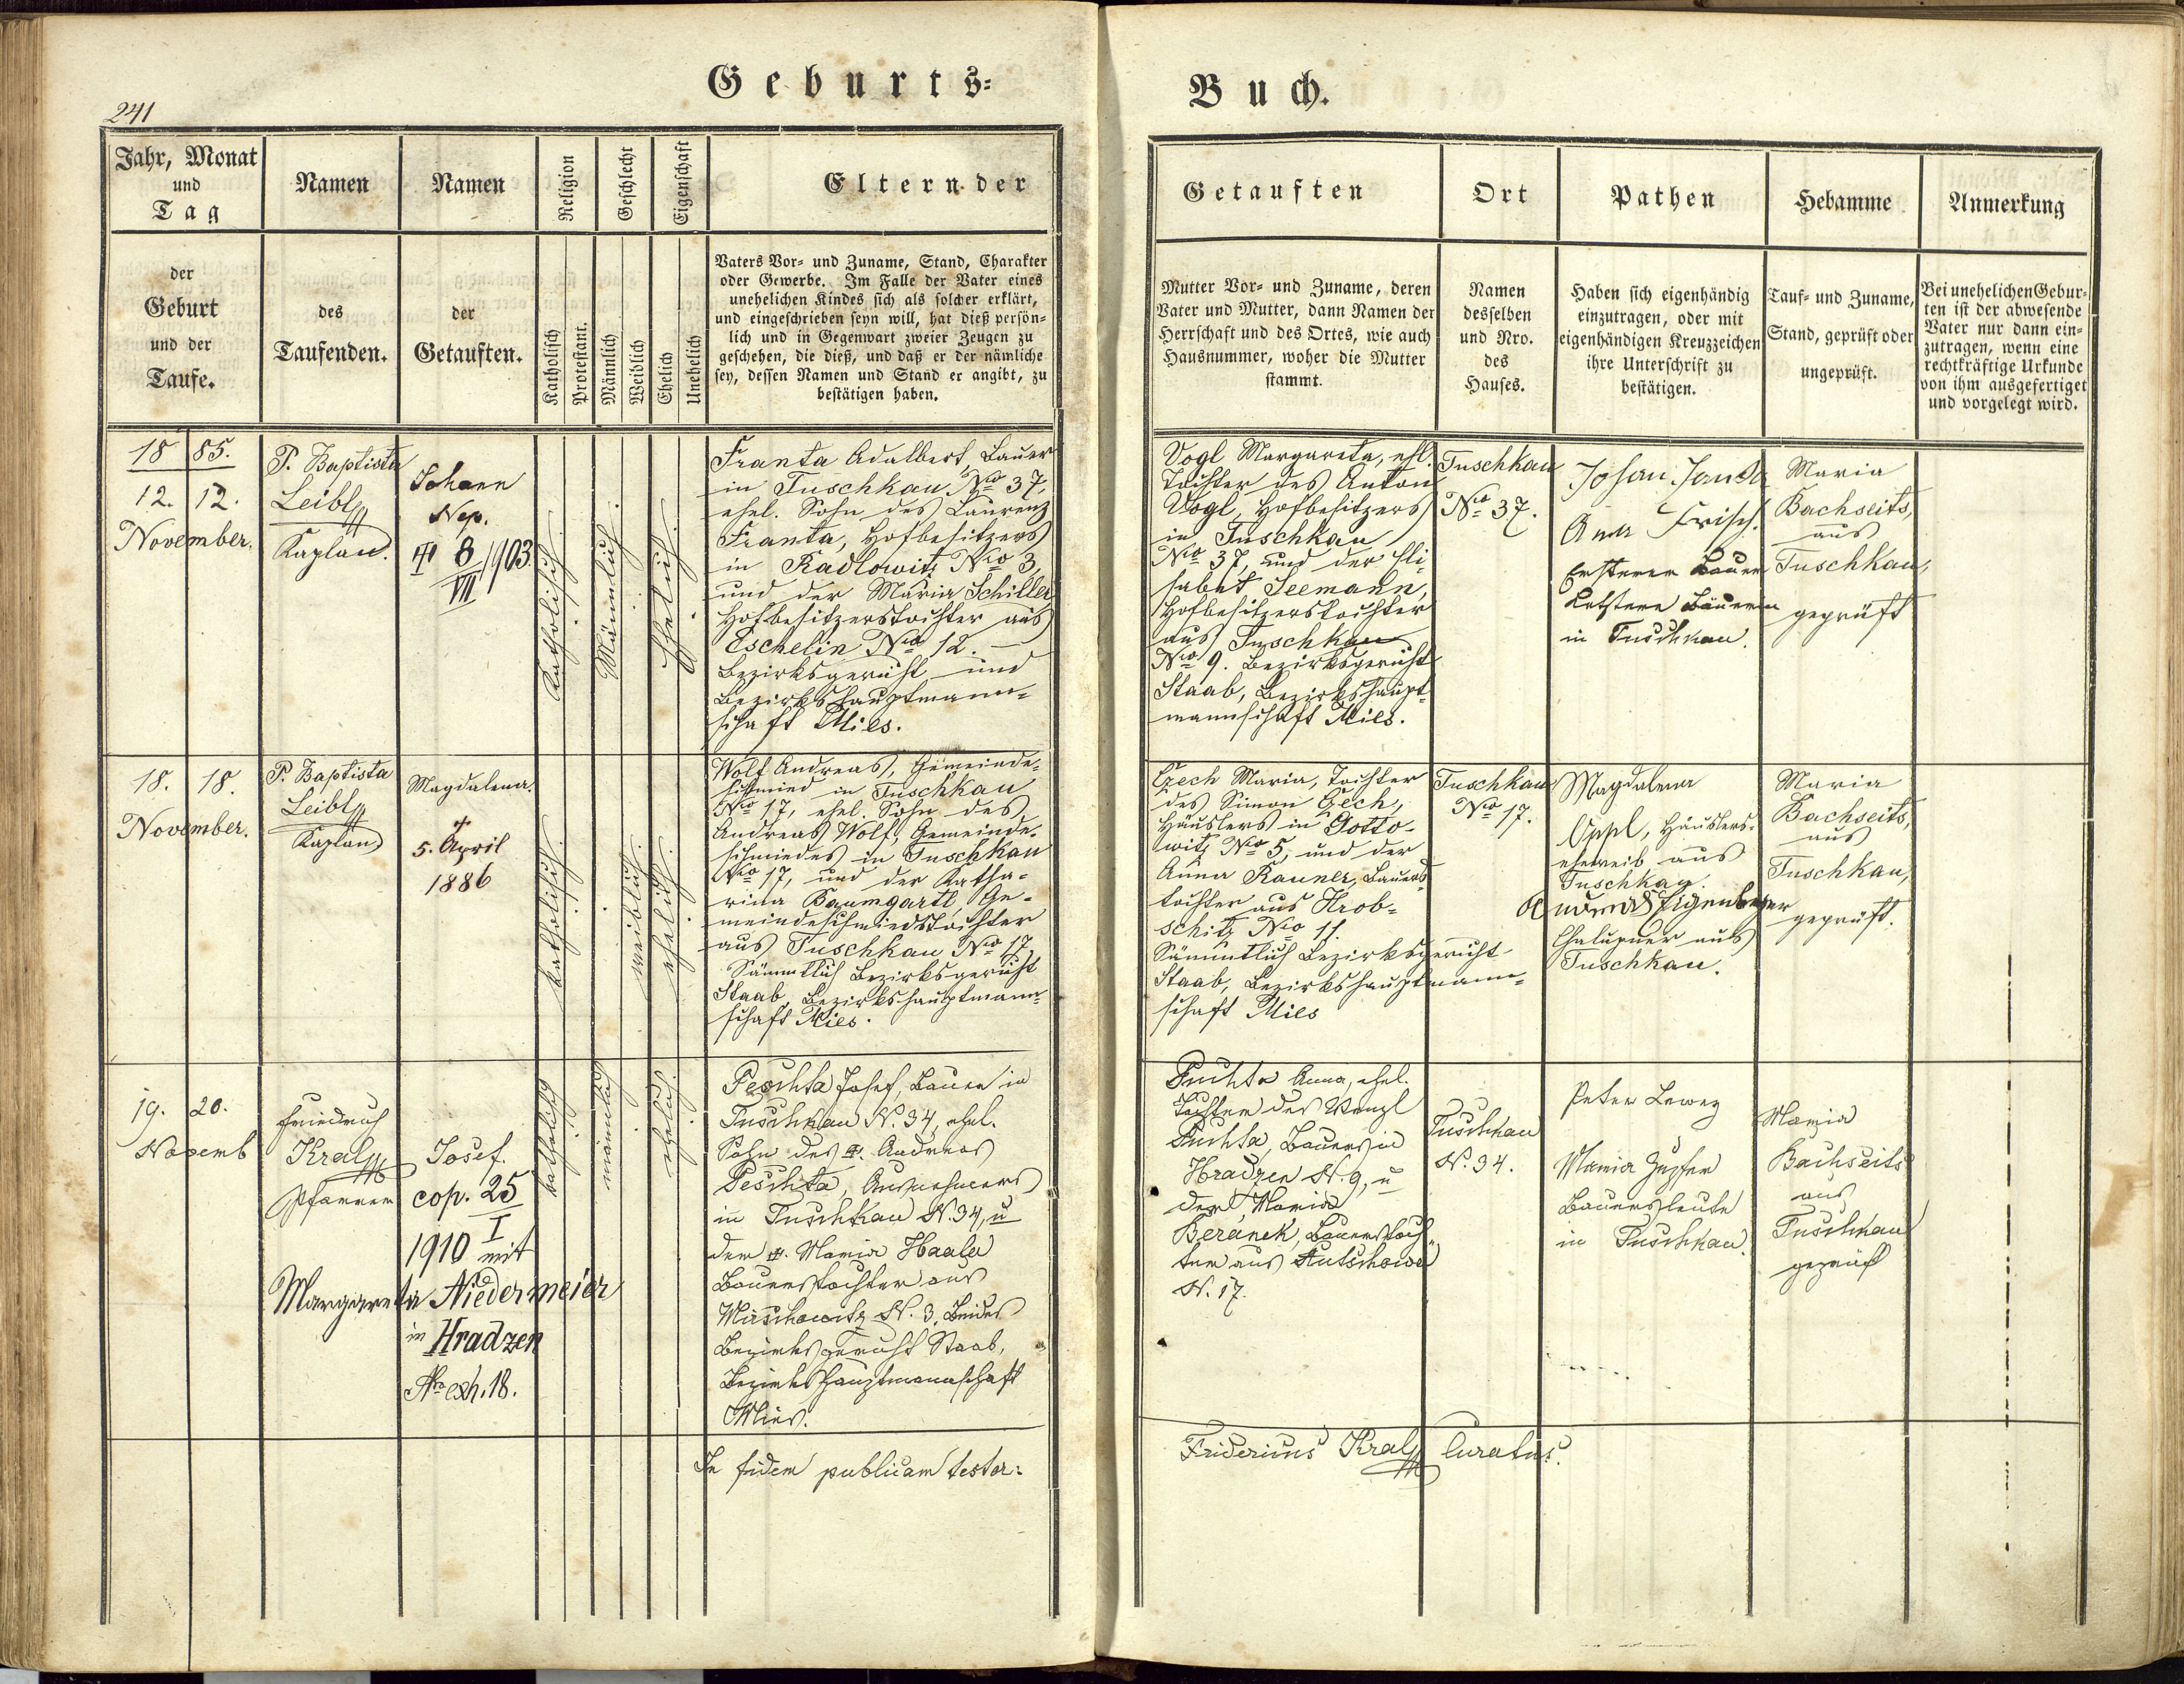 241
Geburts=
Buch.
Jahr, Monat
und
Tag
Namen
Namen
Religion
Geschlecht
Eigenschaft
Eltern der
der
Geburt
und der
Taufe.
des
Taufenden.
der
Getauften.
Katholisch
Protestant.
Männlich
Weiblich
Ehelich
Unehelich
Vaters Vor= und Zuname, Stand, Charakter
oder Gewerbe. Im Falle der Vater eines
unehelichen Kindes sich als solcher erklärt,
und eingeschrieben seyn will, hat dieß persön=
lich und in Gegenwart zweier Zeugen zu
geschehen, die dieß, und daß er der nämliche
sey, dessen Namen und Stand er angibt, zu
bestätigen haben.
Getauften
Ort
Pathen
Hebamme
Anmerkung
Mutter Vor= und Zuname, deren
Vater und Mutter, dann Namen der
Herrschaft und des Ortes, wie auch
Hausnummer, woher die Mutter
stammt.
Namen
desselben
und Nro.
des
Hauses.
Haben sich eigenhändig
einzutragen, oder mit
eigenhändigen Kreuzzeichen
ihre Unterschrift zu
bestätigen.
Tauf= und Zuname,
Stand, geprüft oder
ungeprüft.
Bei unehelichen Gebur=
ten ist der abwesende
Vater nur dann ein=
zutragen, wenn eine
rechtkräftige Urkunde
von ihm ausgefertiget
und vorgelegt wird.
18 85.
12. 12.
November.
P. Baptista
Leibl
Kaplan.
Johann
Nep.
8/VII 1903.
Katholisch.
Männlich.
Ehelich.
Franta Adalbert, Bauer
in Tuschkau Nro 37,
ehel. Sohn des Laurenz
Franta, Hofbesitzers
in Radlowitz Nro 3,
und der Maria Schiller
Hofbesitzerstochter aus
Eschelin Nro 12. —
Bezirksgericht und
Bezirkshauptmann=
schaft Mies.
Vogl Margareta, ehl.
Tochter des Anton
Vogl, Hofbesitzers
in Tuschkau
Nro 37, und der Eli=
sabet Seemann,
Hofbesitzerstochter
aus Tuschkau
Nro 9. Bezirksgericht
Staab, Bezirkshaupt=
mannschaft Mies.
Tuschkau
Nro 37.
Johan Janda
Anna Frisch.
Ersterer Bauer
Letztere Bäuerin
in Tuschkau.
Maria
Bachseits,
aus
Tuschkau,
geprüft
18. 18.
November.
P. Baptista
Leibl
Kaplan
Magdalena.
+
5. April
1886
katholisch.
weiblich.
ehelich.
Wolf Andreas, Gemeinde=
schmied in Tuschkau
Nro 17, ehel. Sohn des
Andreas Wolf, Gemeinde=
schmiedes in Tuschkau
Nro 17, und der Katha=
rina Baumgartl, Ge=
meindeschmiedstochter
aus Tuschkau Nro 17.
Sämmtlich Bezirksgericht
Staab, Bezirkshauptmann=
schaft Mies.
Czech Maria, Tochter
des Simon Czech,
Häuslers in Gotto=
witz Nro 5, und der
Anna Rauner, Bauers=
tochter aus Hrob=
schitz Nro 11.
Sämmtlich Bezirksgericht
Staab, Bezirkshauptmann=
schaft Mies
Tuschkau
Nro 17.
Magdalena
Oppl, Häuslers=
eheweib aus
Tuschkau.
Andreas
Chalupner aus
Tuschkau.
Maria
Bachseits,
aus
Tuschkau,
geprüft.
19. 20.
Novemb
Friedrich
Kral
Pfarrer
Josef.
cop. 25
I
1910 mit
Margareta Niedermeier
in Hradzen
Nro exh. 18.
katholisch
männlich
ehelich
Peschta Josef, Bauer in
Tuschkau N. 34, ehel.
Sohn des Andreas
Peschta, Ausnehmers
in Tuschkau N. 34, u
der Maria Haala
Bauerstochter aus
Mirschowitz N. 3. Beides
Bezirksgericht Staab,
Bezirkshauptmannschaft
Mies.
Puchta Anna, ehel.
Tochter des Wenzl
Puchta, Bauers in
Hradzen N. 9, u
der Maria
Beránek, Bauerstoch=
ter aus
N. 17.
Tuschkau
N. 34.
Peter
Maria
Bauersleute
in Tuschkau.
Maria
Bachseits
aus
Tuschkau
geprüft
In fidem publicam testor:
Fridericus Kral Curatus.